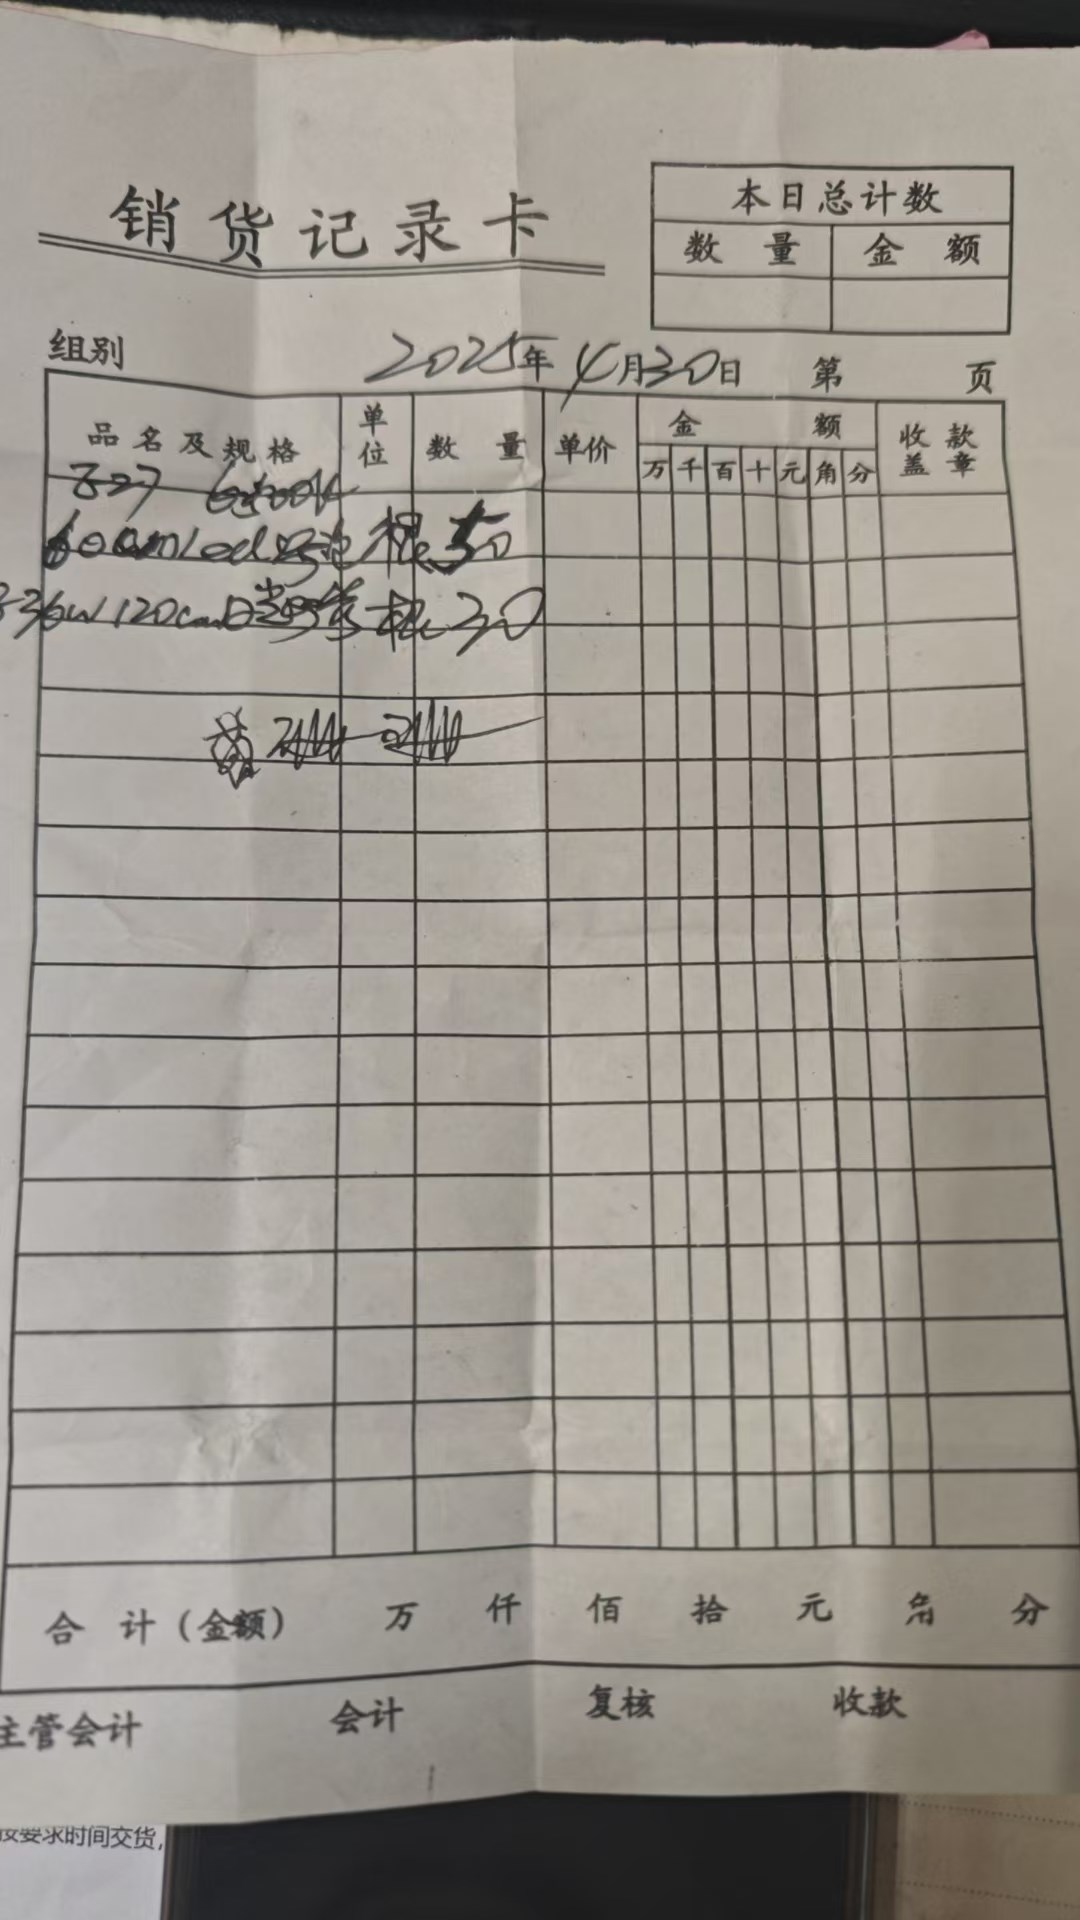 销货记录卡
本日总计数
数量 金额
组别 2025年4月30日 第 页
品名及规格 单位 数量 单价 金额 收款盖章
万 千 百 十 元 角 分
E27
60cm led 根 50
36W 120cm 日 根 30
合计(金额) 万 仟 佰 拾 元 角 分
主管会计 会计 复核 收款
按要求时间交货,